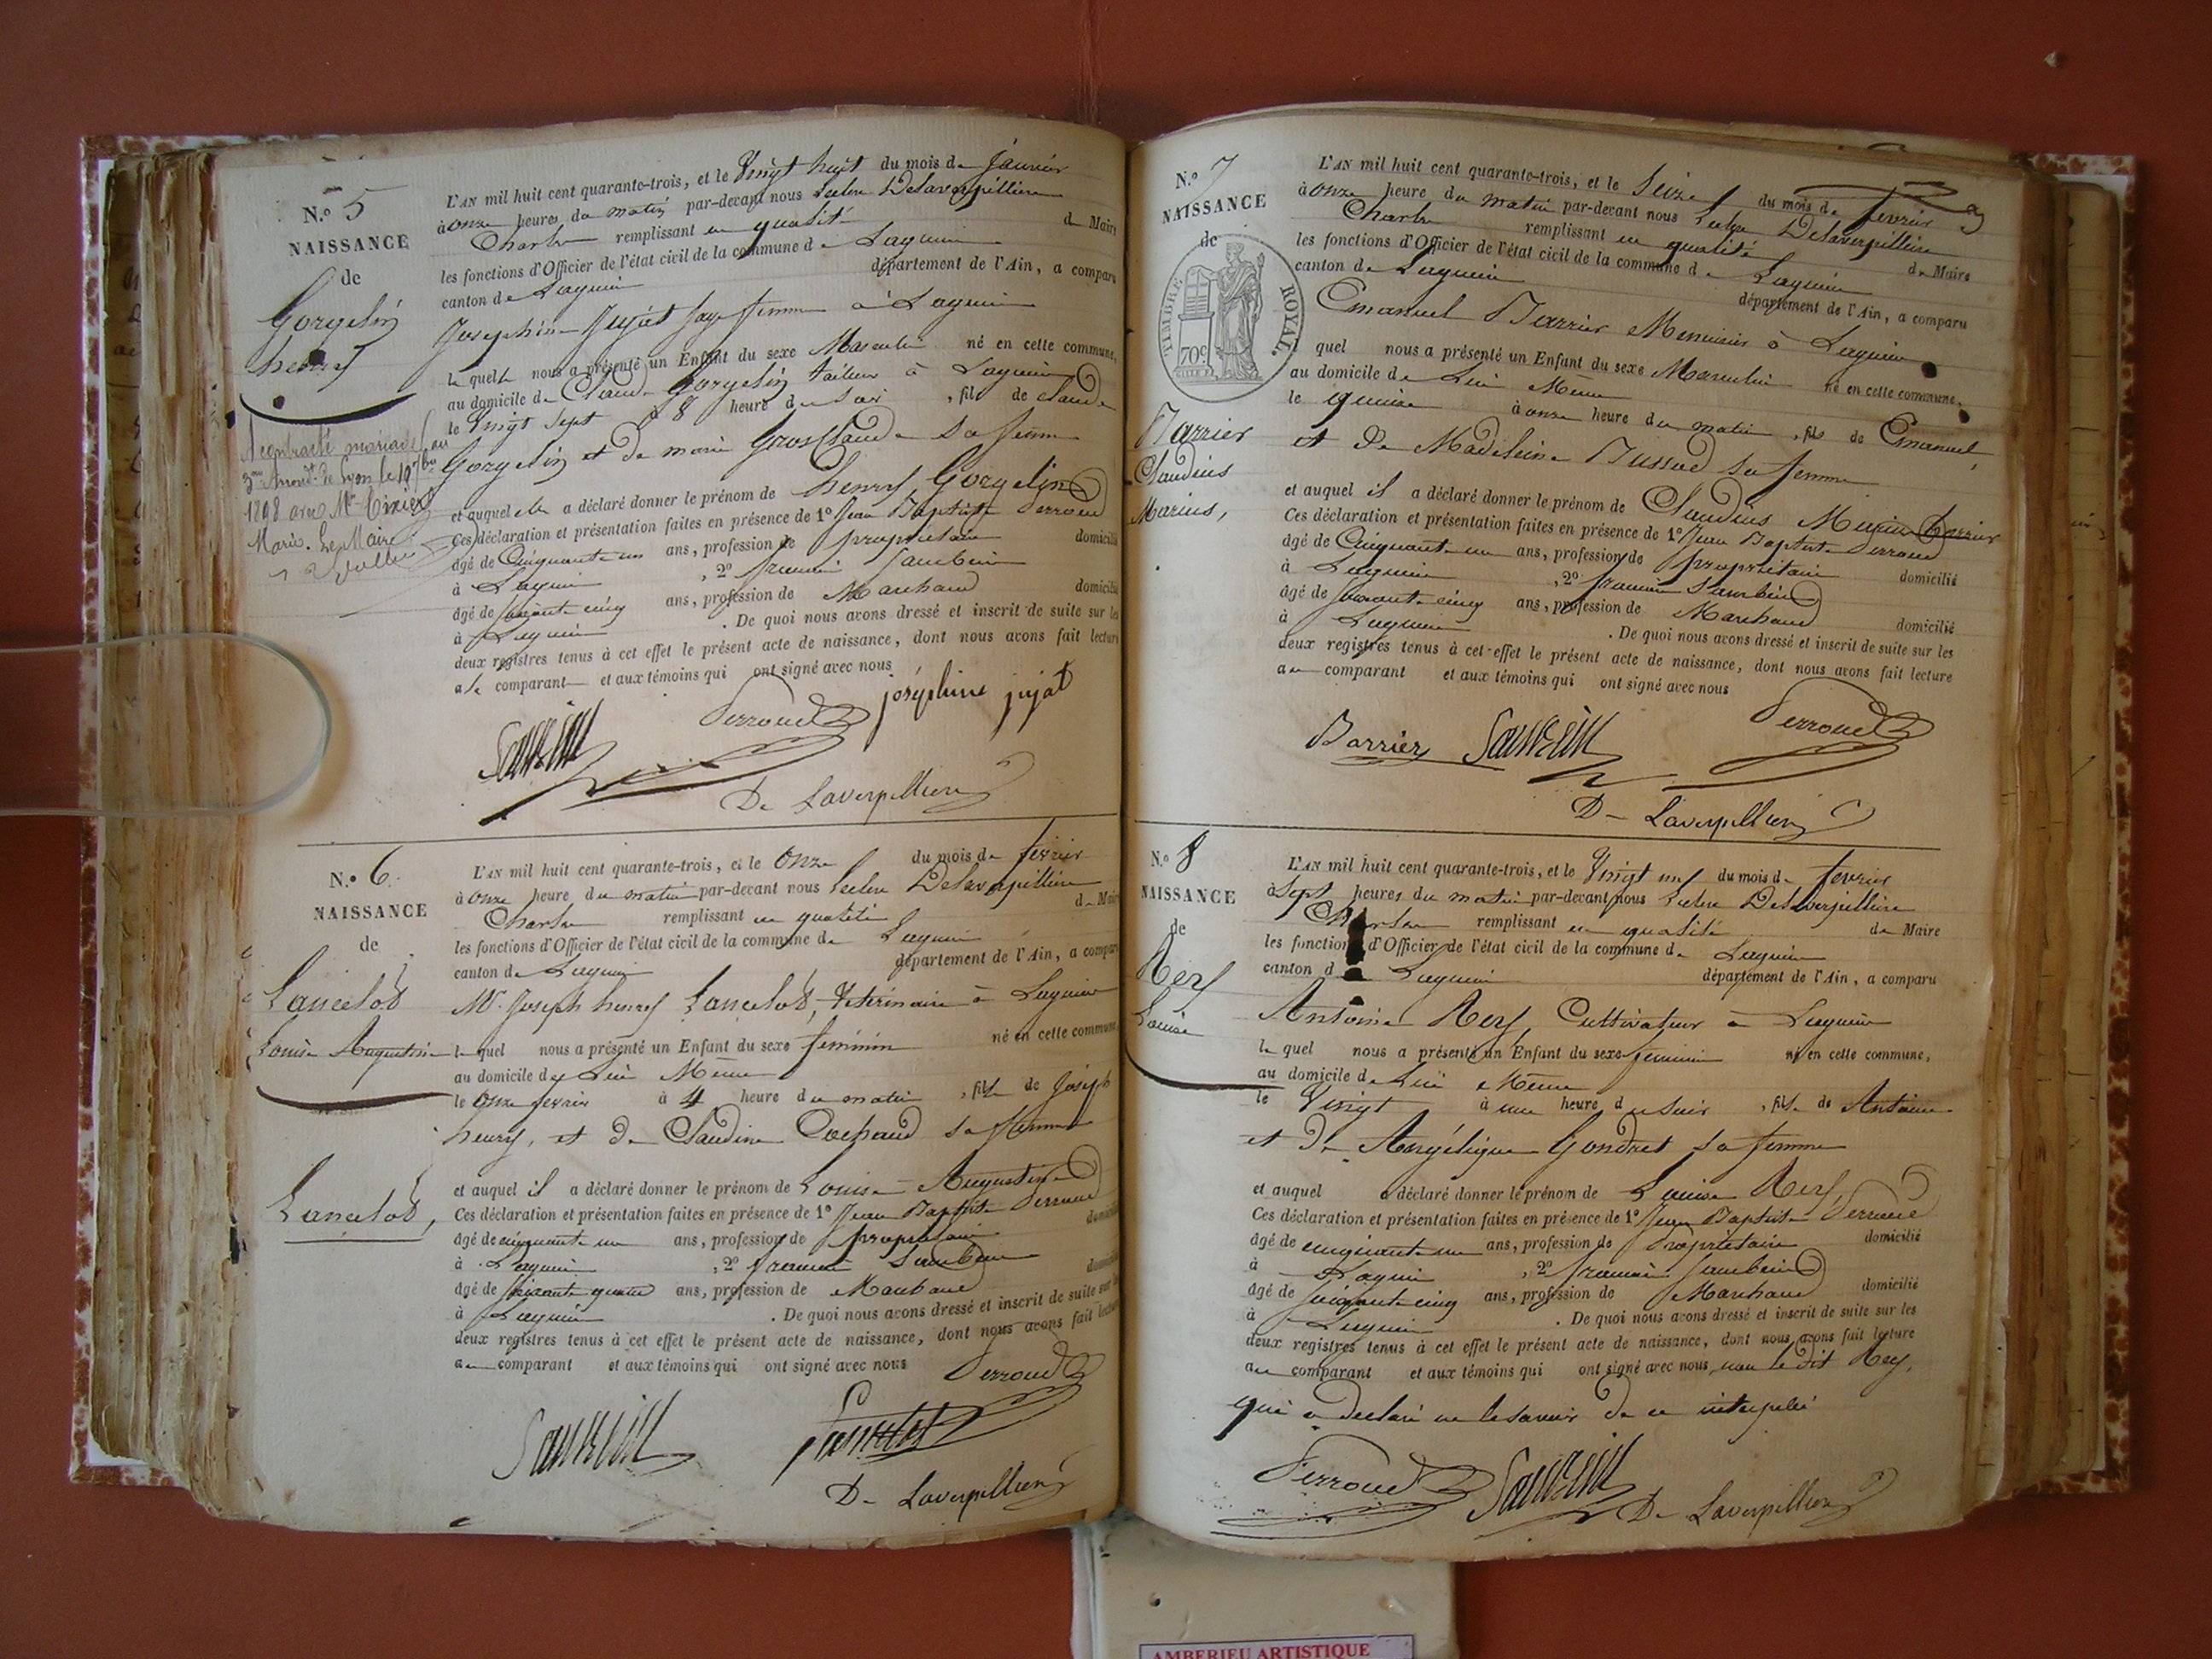 N.° 5
NAISSANCE
de
Gorgelin
henry
A contracté mariage au
3me Arrondt. de Lyon le 19 7bre
1898 avec Mlle
Marie. Le Maire
L'AN mil huit cent quarante-trois, et le Vingt huit du mois de janvier
à onze heures du matin par-devant nous Leclerc Delaverpillière
Charles remplissant en qualité de Maire
les fonctions d'Officier de l'état civil de la commune de Lagnieu
canton de Lagnieu département de l'Ain, a comparu
Josephine Jujat sage femme à Lagnieu
le quelle nous a présenté un Enfant du sexe Masculin né en cette commune,
au domicile de Claude Gorgelin tailleur à Lagnieu
le Vingt sept à 8 heure du soir, fils de Claude
Gorgelin et de marie GrosClaude sa femme
et auquel elle a déclaré donner le prénom de henry Gorgelin
Ces déclaration et présentation faites en présence de 1° Jean Baptiste Perroud
âgé de Cinquante un ans, profession de propriétaire domicilié
à Lagnieu, 2° françois Sauvbein
âgé de soixante cinq ans, profession de Marchand domicilié
à Lagnieu. De quoi nous avons dressé et inscrit de suite sur les
deux registres tenus à cet effet le présent acte de naissance, dont nous avons fait lecture
a la comparant et aux témoins qui ont signé avec nous
Perroud joséphine jujat
De Laverpillière
N.° 6
NAISSANCE
de
Lancelot
Louise Augustine
Lancelot,
L'AN mil huit cent quarante-trois, et le Onze du mois de fevrier
à onze heure du matin par-devant nous Leclerc Delaverpillière
Charles remplissant en qualité de Maire
les fonctions d'Officier de l'état civil de la commune de Lagnieu
canton de Lagnieu département de l'Ain, a comparu
Mr. Joseph henry Lancelot, Vétérinaire à Lagnieu
le quel nous a présenté un Enfant du sexe feminin né en cette commune
au domicile de Lui Même
le Onze fevrier à 4 heure du matin, fille de Joseph
henry, et de Claudine Cochaud sa femme
et auquel il a déclaré donner le prénom de Louise Augustine
Ces déclaration et présentation faites en présence de 1° Jean Baptiste Perroud
âgé de cinquante un ans, profession de propriétaire domicilié
à Lagnieu, 2° françois
âgé de soixante quatre ans, profession de Marchand
à Lagnieu. De quoi nous avons dressé et inscrit de suite sur les
deux registres tenus à cet effet le présent acte de naissance, dont nous avons fait lecture
au comparant et aux témoins qui ont signé avec nous
Perroud
De Laverpillière
N.° 7
NAISSANCE
de
TIMBRE ROYAL.
70c
Barrier
Claudius
Marius,
L'AN mil huit cent quarante-trois, et le Seize du mois de fevrier
à onze heure du matin par-devant nous Leclerc Delaverpillière
Charles remplissant en qualité de Maire
les fonctions d'Officier de l'état civil de la commune de Lagnieu
canton de Lagnieu département de l'Ain, a comparu
Emanuel Barrier Menuisier à Lagnieu
quel nous a présenté un Enfant du sexe Masculin né en cette commune,
au domicile de Lui Même
le quinze à onze heure du matin, fils de Emanuel,
et de Madeleine Bussod sa femme
et auquel il a déclaré donner le prénom de Claudius Marius Barrier
Ces déclaration et présentation faites en présence de 1° Jean Baptiste Perroud
âgé de Cinquante un ans, profession de propriétaire domicilié
à Lagnieu, 2° françois
âgé de soixante cinq ans, profession de Marchand domicilié
à Lagnieu. De quoi nous avons dressé et inscrit de suite sur les
deux registres tenus à cet effet le présent acte de naissance, dont nous avons fait lecture
au comparant et aux témoins qui ont signé avec nous
Barrier Perroud
De Laverpillière
N.° 8
NAISSANCE
de
Rey
Louise
L'AN mil huit cent quarante-trois, et le Vingt un du mois de fevrier
à Sept heures du matin par-devant nous Leclerc Delaverpillière
Charles remplissant en qualité de Maire
les fonctions d'Officier de l'état civil de la commune de Lagnieu
canton de Lagnieu département de l'Ain, a comparu
Antoine Rey, Cultivateur à Lagnieu
le quel nous a présenté un Enfant du sexe feminin né en cette commune,
au domicile de Lui Même
le Vingt à une heure du soir, fille de Antoine
et de Angélique Gondret sa femme
et auquel a déclaré donner le prénom de Louise Rey,
Ces déclaration et présentation faites en présence de 1° Jean Baptiste Perroud
âgé de cinquante un ans, profession de Propriétaire domicilié
à Lagnieu, 2° françois
âgé de soixante cinq ans, profession de Marchand domicilié
à Lagnieu. De quoi nous avons dressé et inscrit de suite sur les
deux registres tenus à cet effet le présent acte de naissance, dont nous avons fait lecture
au comparant et aux témoins qui ont signé avec nous, non le dit Rey,
qui a déclaré ne le savoir de ce interpellé
Perroud De Laverpillière
AMBERIEU ARTISTIQUE